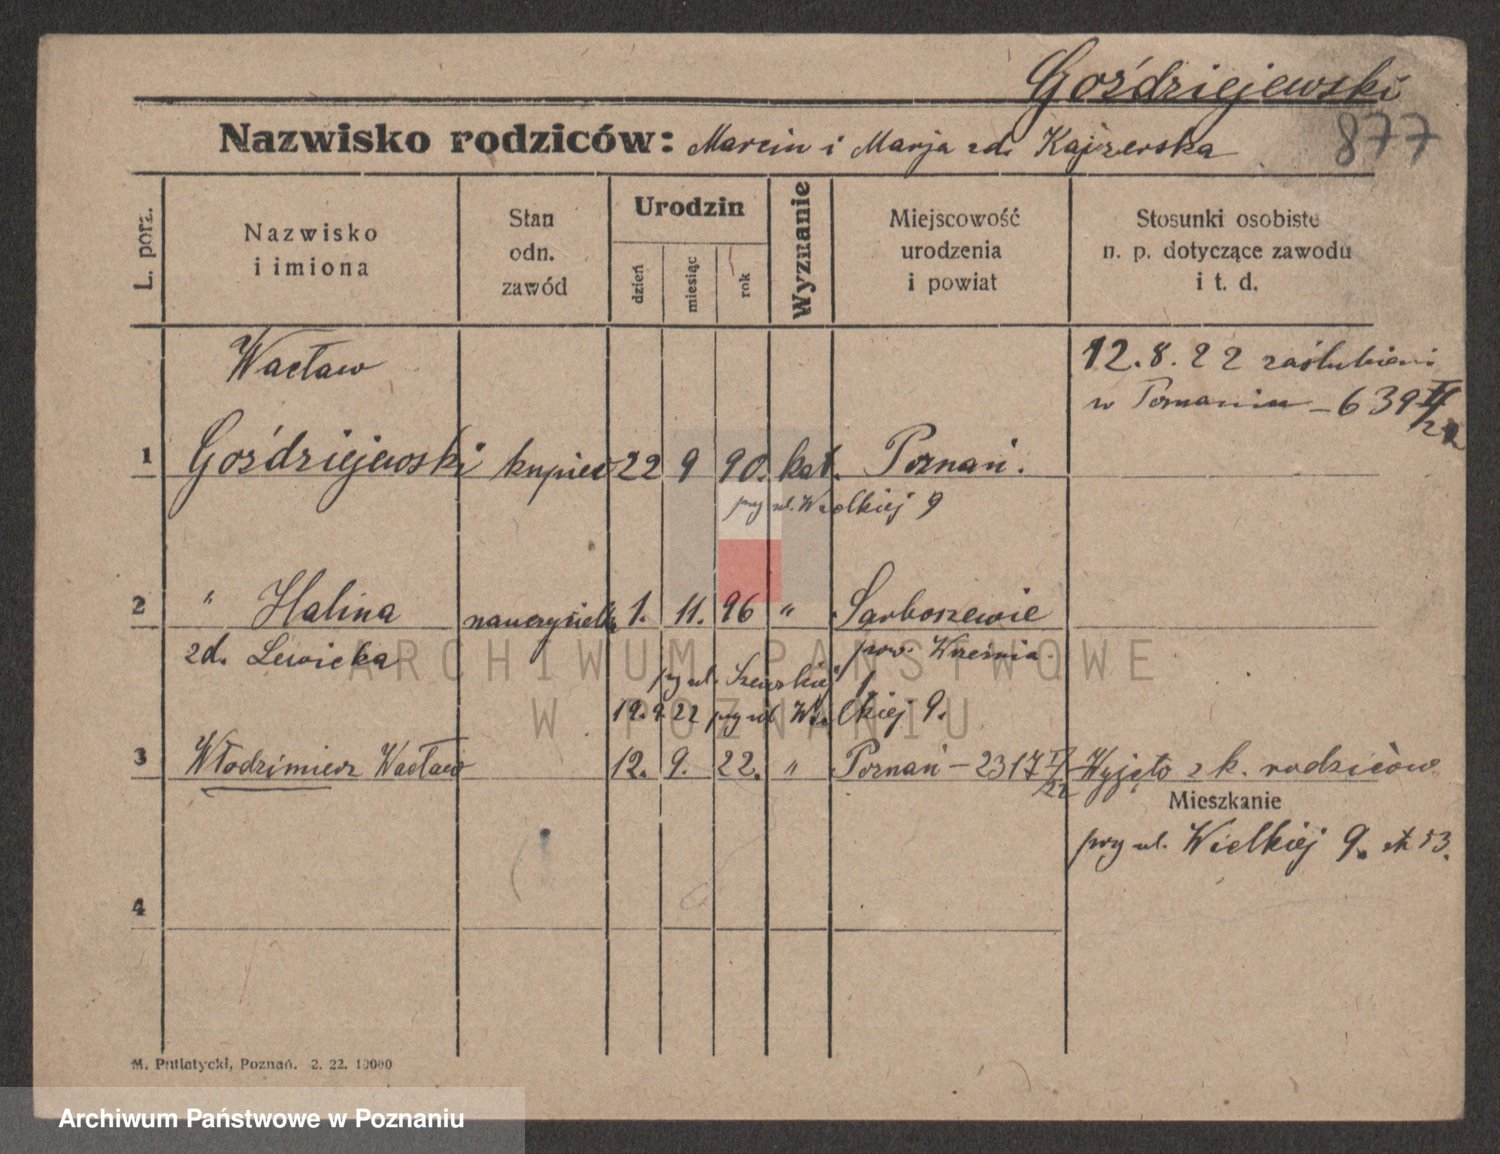 Goździejewski
877
Nazwisko rodziców: Marcin i Marja zd. Kajzerska
L. porz.
Nazwisko i imiona
Stan odn. zawód
Urodzin
dzień
miesiąc
rok
Wyznanie
Miejscowość urodzenia i powiat
Stosunki osobiste n. p. dotyczące zawodu i t. d.
Wacław
12.8.22 zaślubieni
w Poznaniu - 639 II/22
1 Goździejewski kupiec 22 9 90. kat. Poznań.
przy ul. Wielkiej 9
2 " Halina nauczycielka 1. 11. 96 " Sarboszewie
zd. Lewicka pow. Września
przy ul. Szewskiej
19.9.22 przy ul. Wielkiej 9.
3 Włodzimierz Wacław 12. 9. 22. " Poznań - 2317 II/22 Wyjęto z k. rodziców
Mieszkanie
przy ul. Wielkiej 9. 53.
4
M. Putiatycki, Poznań. 2. 22. 10000
ARCHIWUM PAŃSTWOWE
W POZNANIU
Archiwum Państwowe w Poznaniu